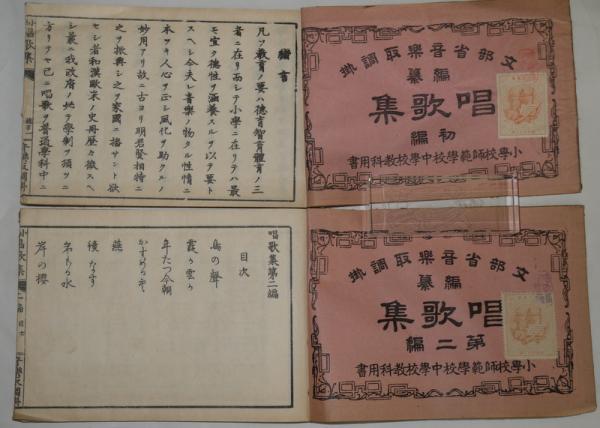 文部省音樂取調掛
編纂
唱歌集
初編
小學校師範學校中學校教科用書
緒言
凡ソ教育ノ要ハ德育智育體育ノ三
者ニ在リ而シテ小學ニ在リテハ最
モ宜ク德性ヲ涵養スルヲ以テ要ト
スヘシ今夫レ音樂ノ物タル性情ニ
本ツキ人心ヲ正シ風化ヲ助クルノ
妙用アリ故ニ古ヨリ明君賢相特ニ
之ヲ振興シ之ヲ家國ニ播サント欲
セシ者和漢歐米ノ史冊歷々徵スヘ
シ曩ニ我政府ノ始テ學制ヲ頒ツニ
方リテヤ已ニ唱歌ヲ普通學科中ニ
文部省音樂取調掛
編纂
唱歌集
第二編
小學校師範學校中學校教科用書
唱歌集第二編
目次
鳥の聲
霞か雲か
年たつ今朝
かすめる空
燕
岸の櫻